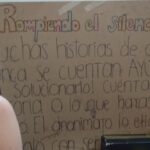 Rompiendo el silenc
uchas historias de
nca se cuentan AYU
Solucionarlo! cuenta
oria o lo que hagas
El anonimato lo el
con se